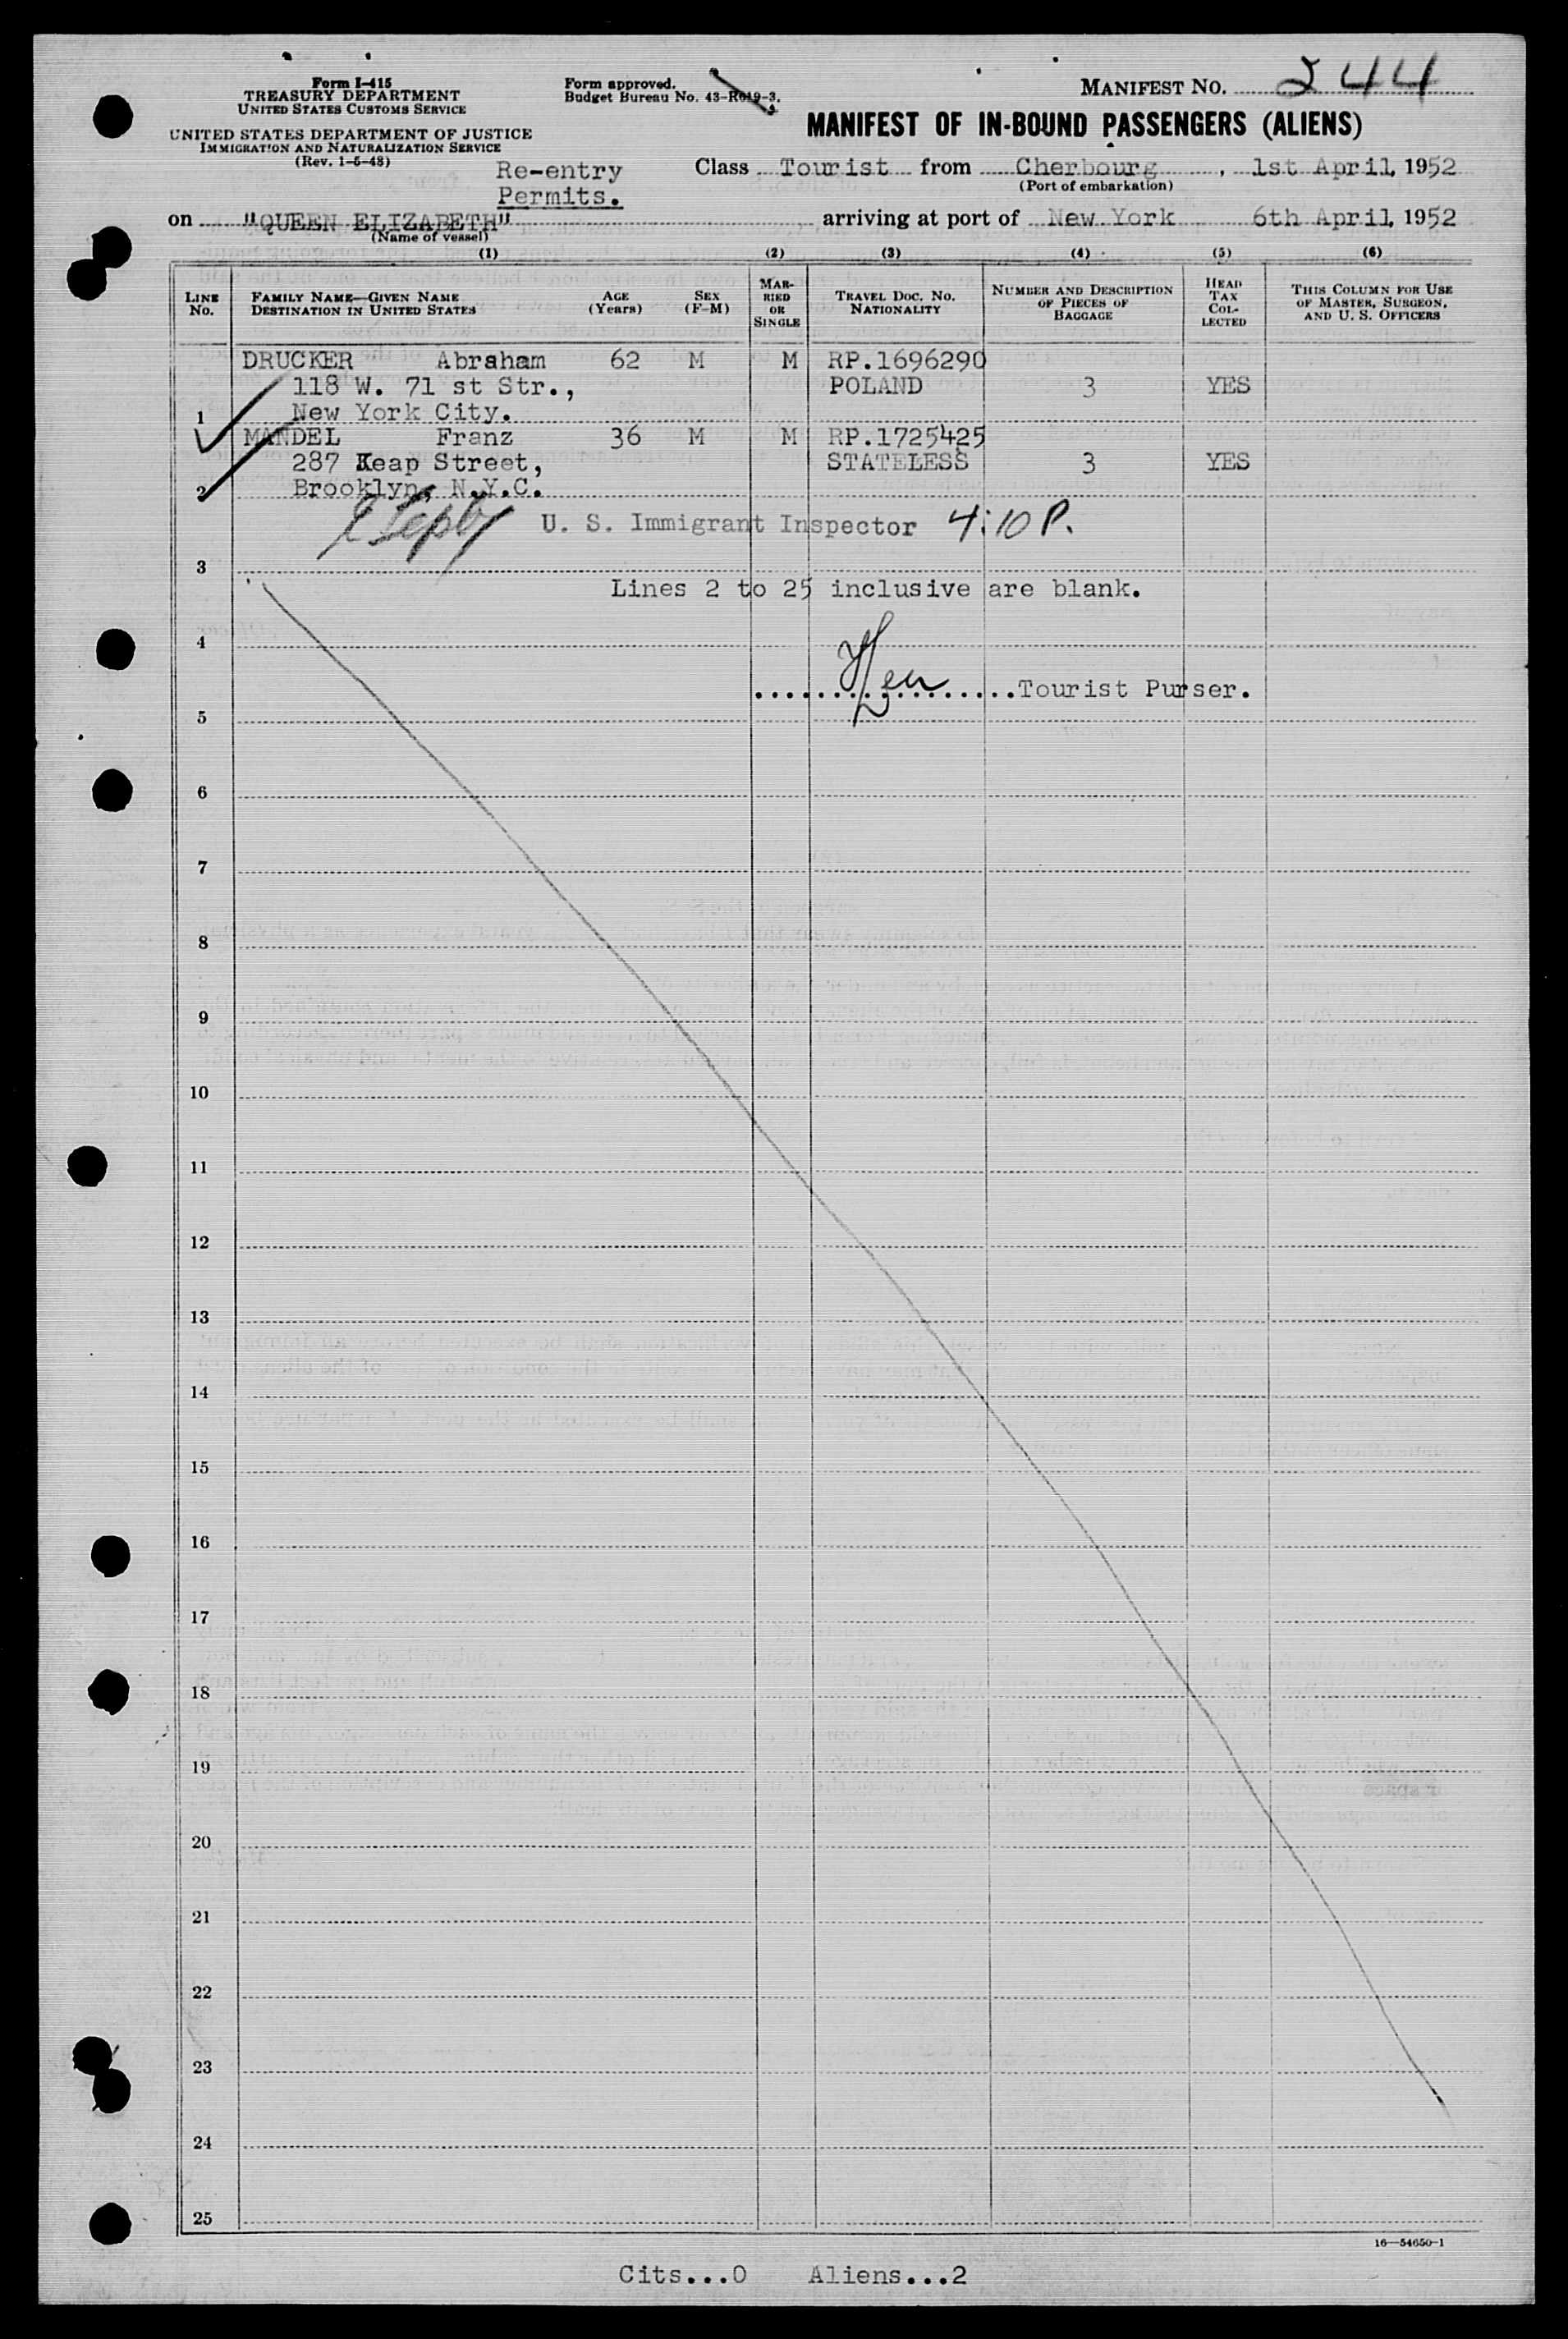 Form I-415
TREASURY DEPARTMENT
UNITED STATES CUSTOMS SERVICE
UNITED STATES DEPARTMENT OF JUSTICE
IMMIGRATION AND NATURALIZATION SERVICE
(Rev. 1-5-48)
Form approved.
Budget Bureau No. 43-R019-3.
MANIFEST NO. 244
MANIFEST OF IN-BOUND PASSENGERS (ALIENS)
Re-entry
Permits.
Class Tourist from Cherbourg, 1st April, 1952
(Port of embarkation)
on "QUEEN ELIZABETH" arriving at port of New York 6th April, 1952
(Name of vessel)
(1) (2) (3) (4) (5) (6)
LINE No. FAMILY NAME—GIVEN NAME DESTINATION IN UNITED STATES AGE (Years) SEX (F-M) MARRIED OR SINGLE TRAVEL DOC. NO. NATIONALITY NUMBER AND DESCRIPTION OF PIECES OF BAGGAGE HEAD TAX COLLECTED THIS COLUMN FOR USE OF MASTER, SURGEON, AND U. S. OFFICERS
DRUCKER Abraham 62 M M RP.1696290
118 W. 71 st Str., POLAND 3 YES
1 New York City.
MANDEL Franz 36 M M RP.1725425
287 Keap Street, STATELESS 3 YES
2 Brooklyn, N.Y.C.
U. S. Immigrant Inspector 4:10 P.
3
Lines 2 to 25 inclusive are blank.
4
..................Tourist Purser.
5
6
7
8
9
10
11
12
13
14
15
16
17
18
19
20
21
22
23
24
25
16—54650-1
Cits...0 Aliens...2